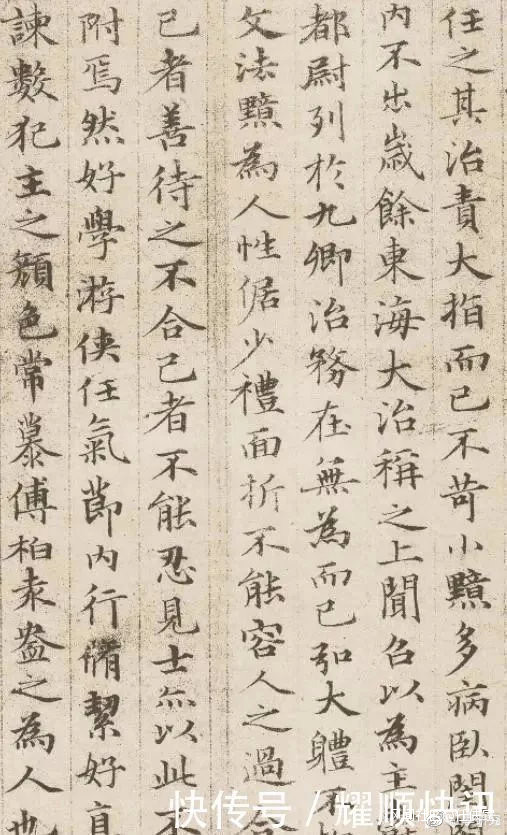 任之其治責大指而已不苛小黯多病臥閨
內不出歲餘東海大治稱之上聞召以為主
都尉列於九卿治務在無為而已弘大體不
文法黯為人性倨少禮面折不能容人之過
己者善待之不合己者不能忍見士亦以此不
附焉然好學游俠任氣節內行脩絜好直
諫數犯主之顏色常慕傅柏袁盎之為人也
快传号／耀顺快讯